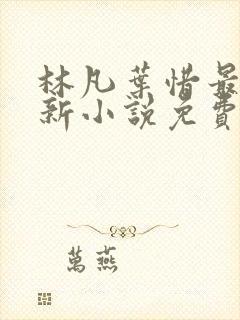 林凡葉惜最
新小說免費
萬燕